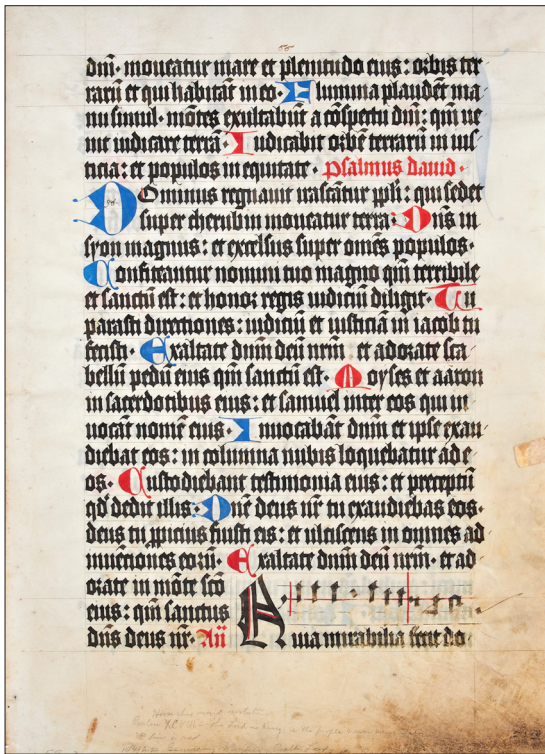 dñi · moueatur mare et plenitudo eius : orbis ter
rarū et qui habitāt in eo · Flumina plaudēt ma
nu simul · mōtes exultabūt a cōspectu dñi : qm̄ ue
nit iudicare terrā · Iudicabit orbē terrarū in ius
ticia : et populos in equitate · psalmus dauid ·
Dominus regnauit irascātur ppl̄i : qui sedet
super cherubin moueatur terra · Dñs in
syon magnus : et excelsus super om̄es populos ·
Confiteantur nomini tuo magno qm̄ terribile
et sanctū est : et honor regis iudiciū diligit · Tu
parasti directiones : iudiciū et iusticiā in iacob tu
fecisti · Exaltate dn̄m deū nr̄m : et adorate sca
bellū pedū eius qm̄ sanctū est · Moyses et aaron
in sacerdotibus eius : et samuel inter eos qui in
uocāt nomē eius · Inuocabāt dn̄m et ipse exau
diebat eos : in columna nubis loquebatur ad e
os · Custodiebant testimonia eius : et preceptū
qđ dedit illis : Dn̄e deus nr̄ tu exaudiebas eos ·
deus tu ꝓpicius fuisti eis : et ulciscens in omnes ad
inuentiones eorū · Exaltate dn̄m deū nr̄m · et ad
orate in mōte scō
eius : qm̄ sanctus
dn̄s deus nr̄ · Añ
Quia mirabilia fecit do